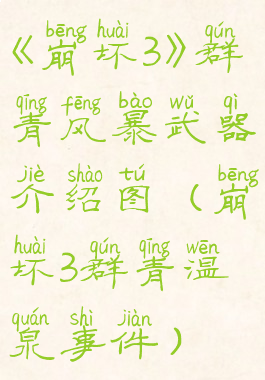 bēng huài qún
《崩坏3》群
qīng fēng bào wǔ qì
青风暴武器
jiè shào tú bēng
介绍图（崩
huài qún qīng wēn
坏3群青温
quán shì jiàn
泉事件）